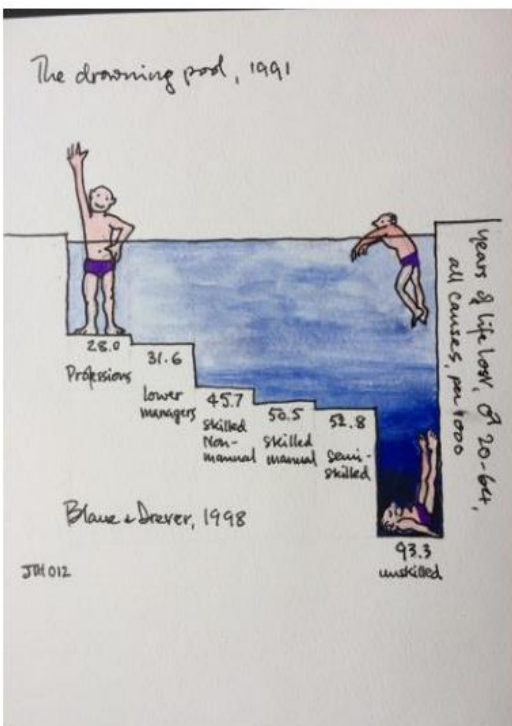 The drowning pool, 1991
28.0
Professions
31.6
lower
managers
45.7
skilled
Non-
manual
50.5
skilled
manual
52.8
semi-
skilled
93.3
unskilled
years of life lost, ♂ 20-64,
all causes, per 1000
Blane & Drever, 1998